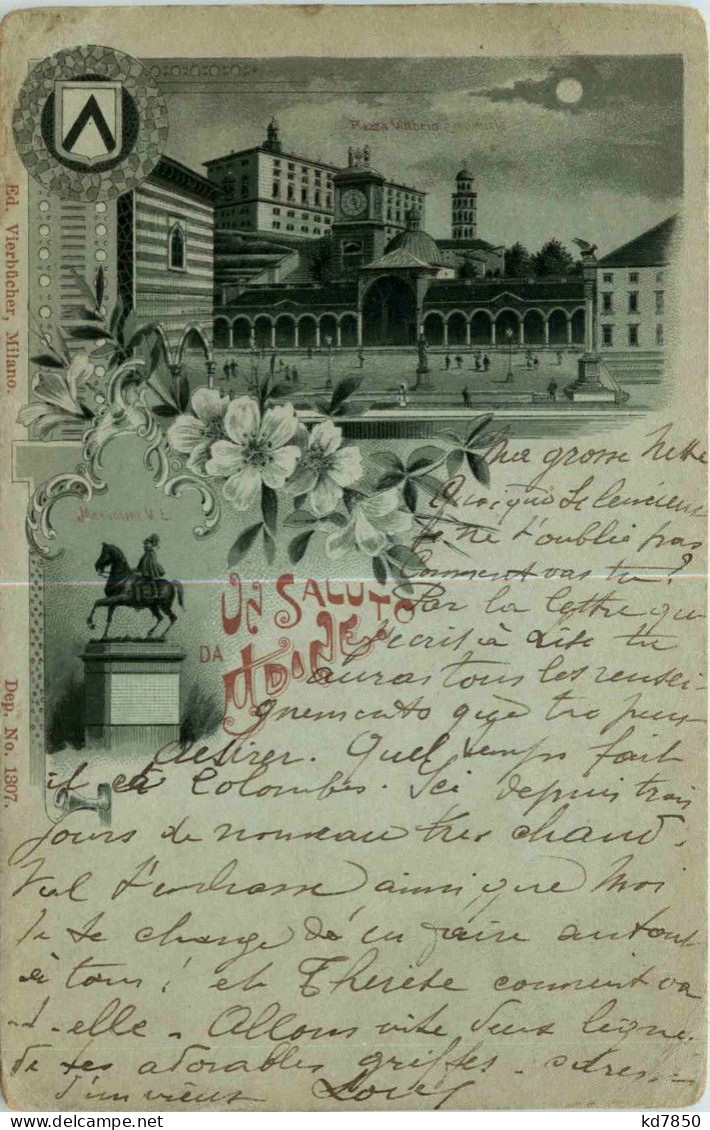 Piazza Vittorio Emanuele
Ed. Vierbücher, Milano.
Dep. No. 1307.
Monument V. E.
UN SALUTO
DA UDINE
Ma grosse Nette
Quoique silencieuse
je ne t'oublie pas
Comment vas tu?
Par la lettre que
j'écris à Lise tu
auras tous les rensei-
gnements que tu peux
désirer. Quel temps fait
il à Colombes. Ici depuis trois
jours de nouveau très chaud.
Val t'embrasse, ainsi que Moi
Je te charge d'en faire autant
à tous! et Thérèse comment va
-t-elle. Allons vite deux lignes
de tes adorables griffes.
d'un vieux
kd7850